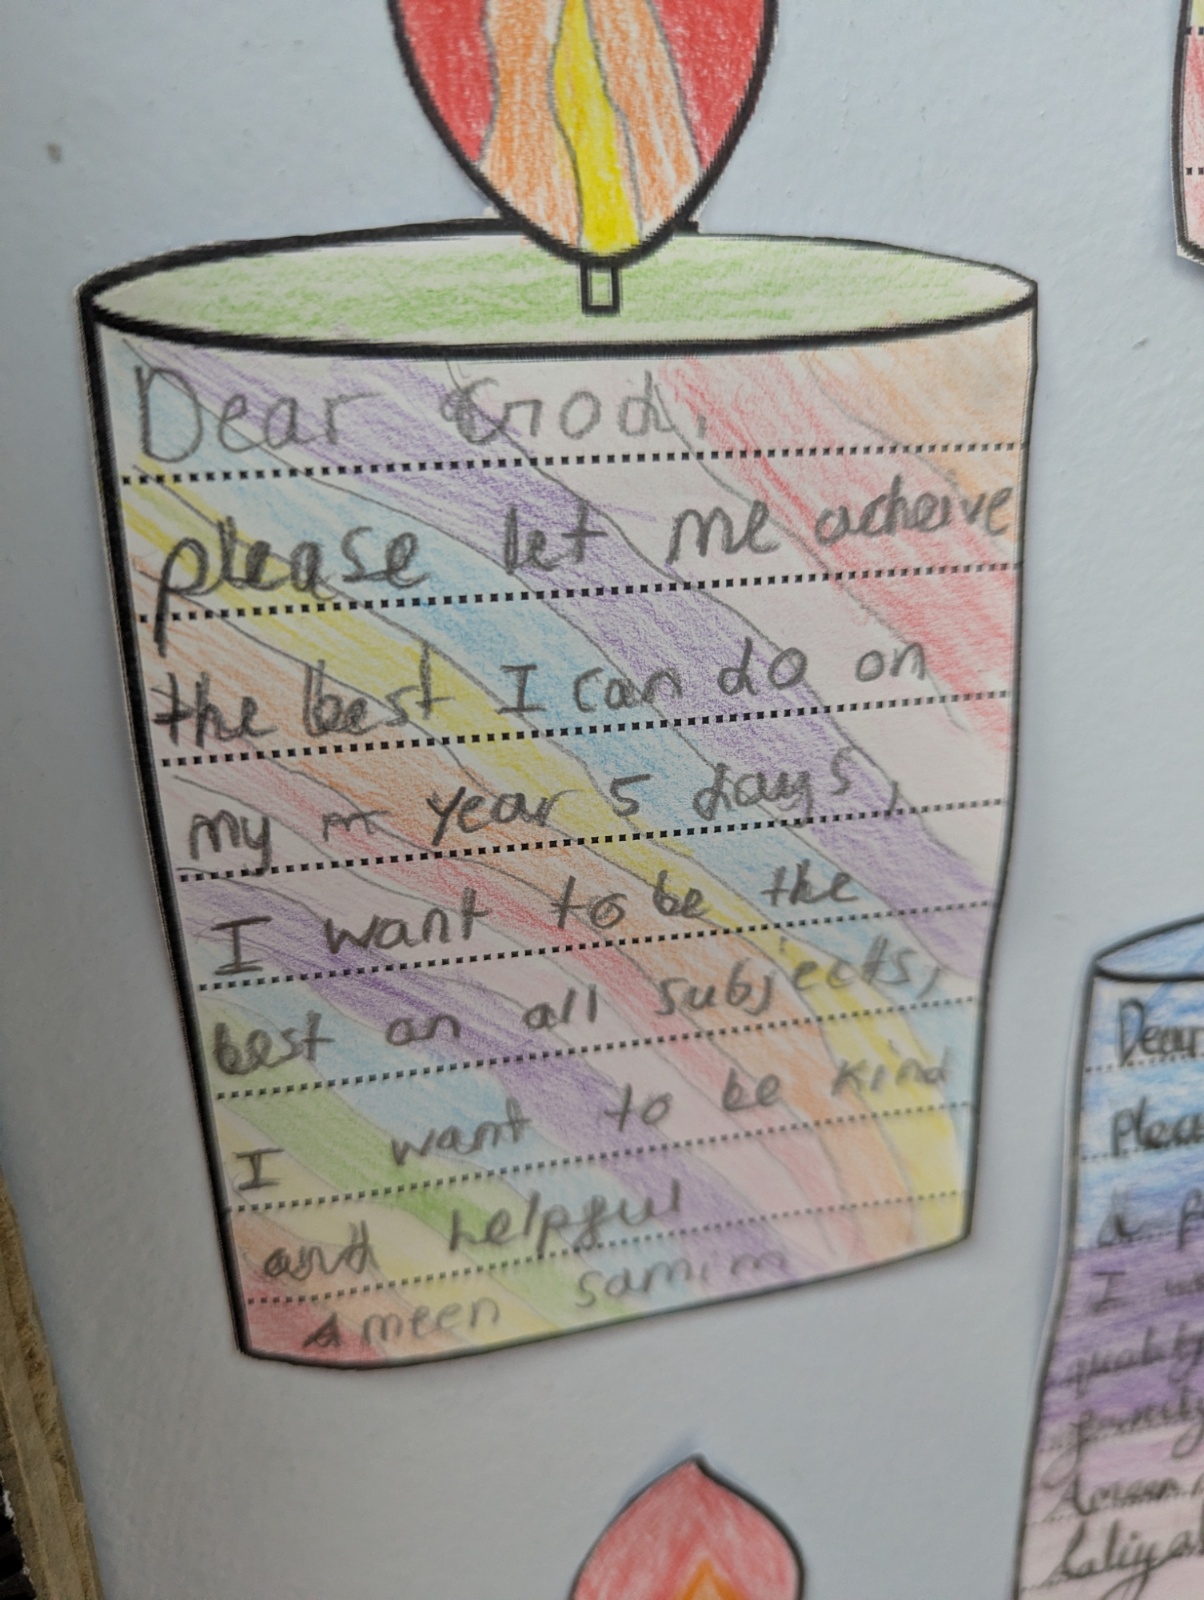 Dear God,
please let me acheive
the best I can do on
my year 5 days,
I want to be the
best on all subjects,
I want to be kind
and helpful
Ameen samim
Dear
pleas
I